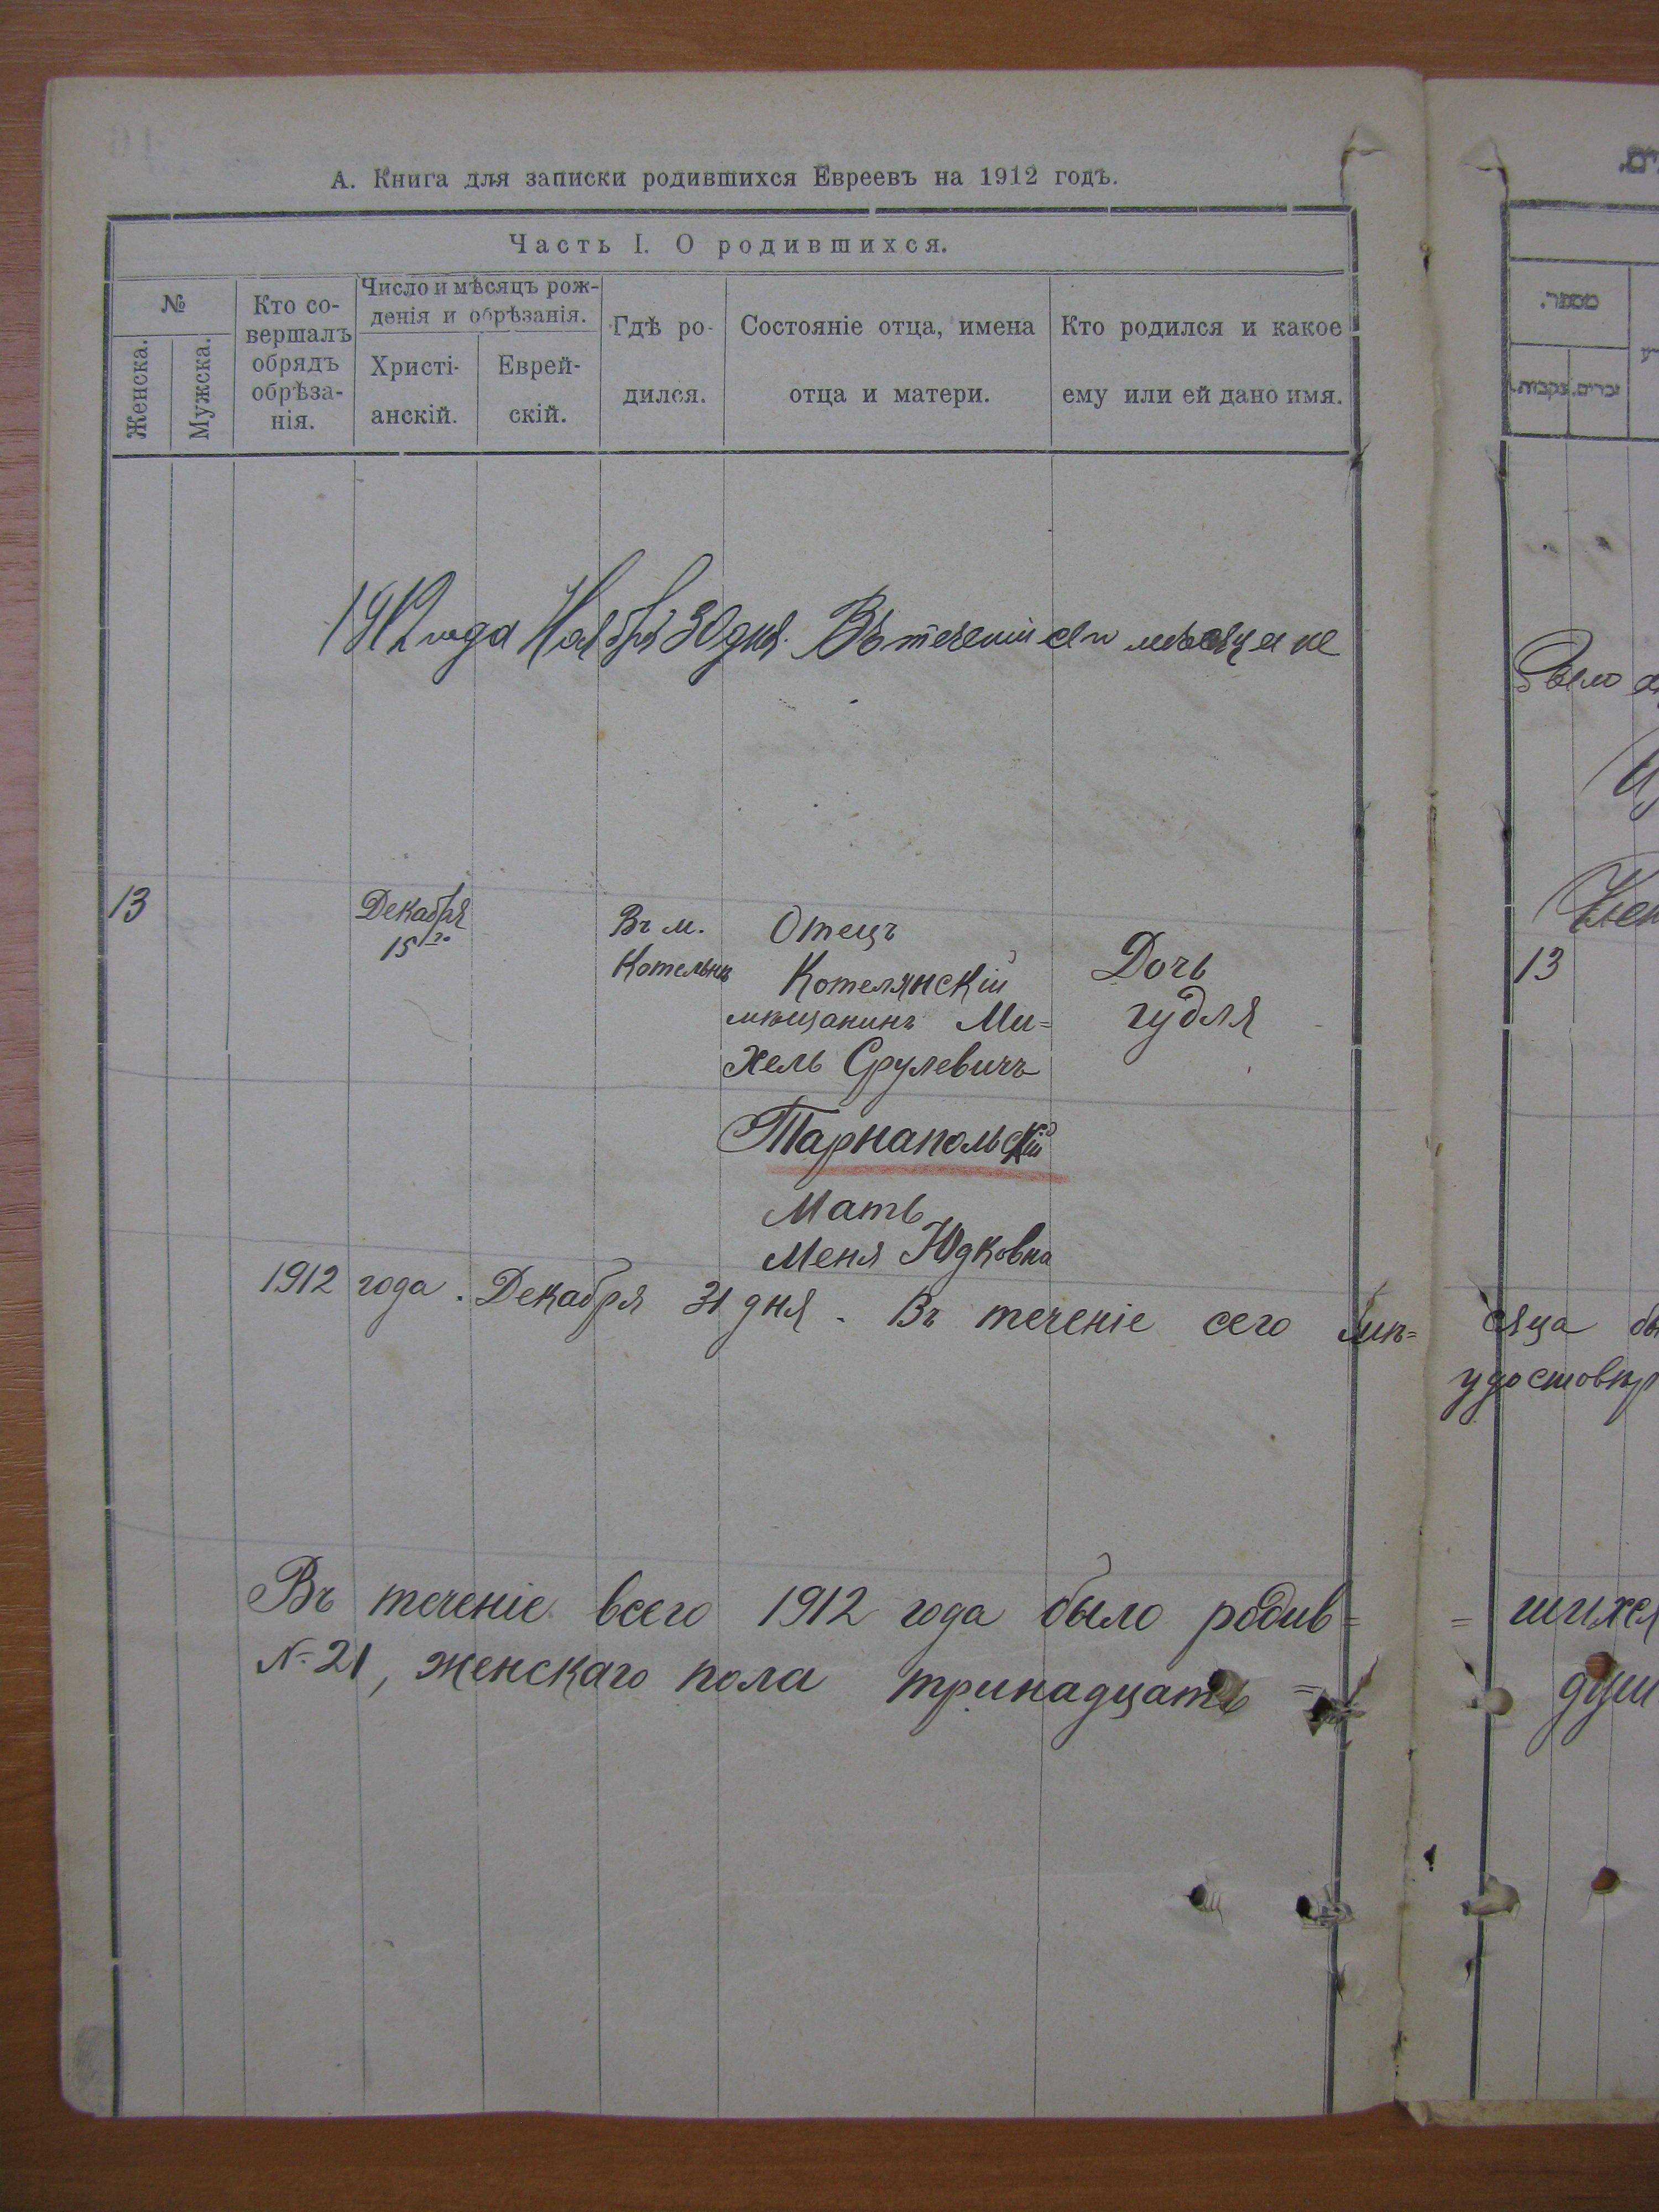 А. Книга для записки родившихся Евреевъ на 1912 годъ.
Часть I. О родившихся.
№
Женска.
Мужска.
Кто со-
вершалъ
обрядъ
обрѣза-
нія.
Число и мѣсяцъ рож-
денія и обрѣзанія.
Христі-
анскій.
Еврей-
скій.
Гдѣ ро-
дился.
Состояніе отца, имена
отца и матери.
Кто родился и какое
ему или ей дано имя.
1912 года Ноября 30 дня. Въ теченіи сего мѣсяца не
13
Декабря
15го
Въ м.
Котельнѣ
Отецъ
Котелянскій
мѣщанинъ Ми=
хель Срулевичъ
Тарнапольскій
Мать
Меня Юдковна
Дочь
гудля
1912 года. Декабря 31 дня. Въ теченіе сего мѣ=
Въ теченіе всего 1912 года было родив=
№ 21, женскаго пола тринадцать =
מספר.
זכרים.
נקבות.
было
13
сяца
удостовѣр
= шихся
душ